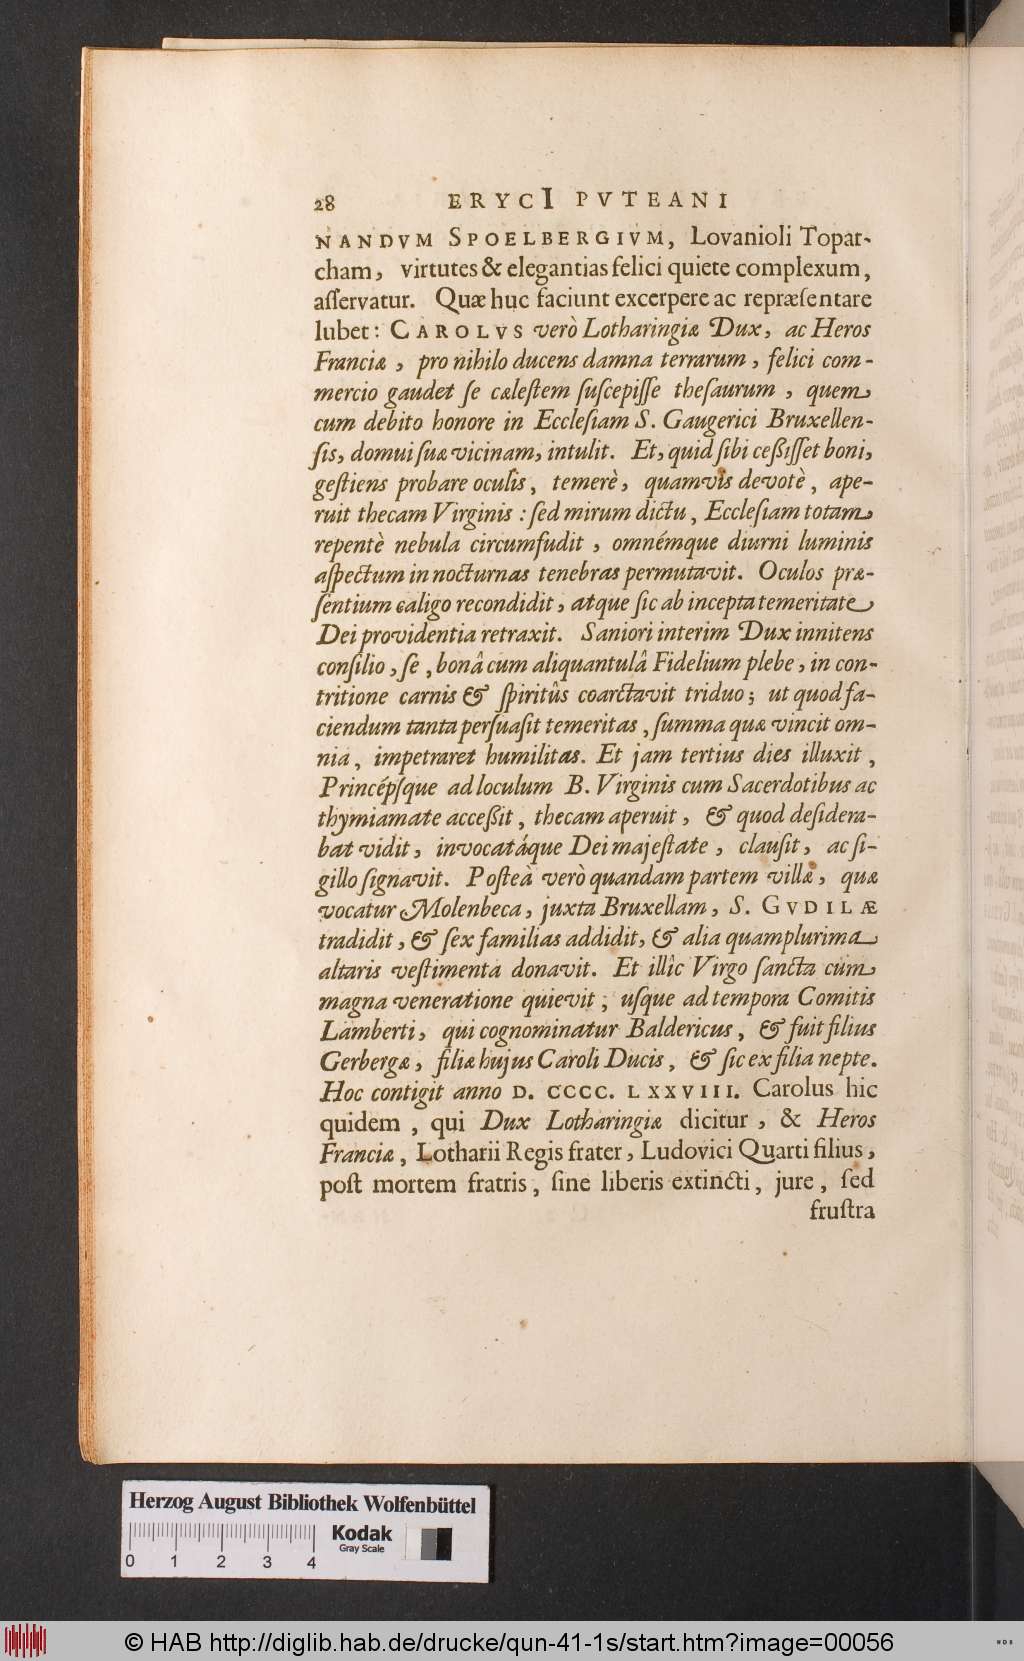 28 ERYCI PVTEANI
NANDVM SPOELBERGIVM, Lovanioli Topar-
cham, virtutes & elegantias felici quiete complexum,
aſſervatur. Quæ huc faciunt excerpere ac repræſentare
lubet: CAROLVS verò Lotharingiæ Dux, ac Heros
Franciæ, pro nihilo ducens damna terrarum, felici com-
mercio gaudet ſe cæleſtem ſuſcepiſſe theſaurum, quem
cum debito honore in Eccleſiam S. Gaugerici Bruxellen-
ſis, domui ſuæ vicinam, intulit. Et, quid ſibi ceßiſſet boni,
geſtiens probare oculîs, temerè, quamvis devotè, ape-
ruit thecam Virginis: ſed mirum dictu, Eccleſiam totam
repentè nebula circumfudit, omnémque diurni luminis
aſpectum in nocturnas tenebras permutavit. Oculos præ-
ſentium caligo recondidit, atque ſic ab incepta temeritate
Dei providentia retraxit. Saniori interim Dux innitens
conſilio, ſe, bonâ cum aliquantulâ Fidelium plebe, in con-
tritione carnis & ſpiritûs coarctavit triduo; ut quod fa-
ciendum tanta perſuaſit temeritas, ſumma quæ vincit om-
nia, impetraret humilitas. Et jam tertius dies illuxit,
Princépſque ad loculum B. Virginis cum Sacerdotibus ac
thymiamate acceßit, thecam aperuit, & quod deſidera-
bat vidit, invocatáque Dei majeſtate, clauſit, ac ſi-
gillo ſignavit. Poſteà verò quandam partem villæ, quæ
vocatur Molenbeca, juxta Bruxellam, S. GVDILÆ
tradidit, & ſex familias addidit, & alia quamplurima
altaris veſtimenta donavit. Et illîc Virgo ſancta cùm
magna veneratione quievit, uſque ad tempora Comitis
Lamberti, qui cognominatur Baldericus, & fuit filius
Gerbergæ, filiæ hujus Caroli Ducis, & ſic ex filia nepte.
Hoc contigit anno D. CCCC. LXXVIII. Carolus hic
quidem, qui Dux Lotharingiæ dicitur, & Heros
Franciæ, Lotharii Regis frater, Ludovici Quarti filius,
poſt mortem fratris, ſine liberis extincti, jure, ſed
fruſtra
Herzog August Bibliothek Wolfenbüttel
Kodak
Gray Scale
0 1 2 3 4
© HAB http://diglib.hab.de/drucke/qun-41-1s/start.htm?image=00056